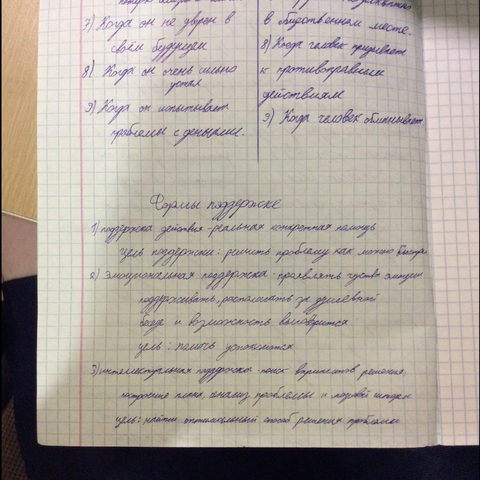 7) Когда он не уверен в
своём будущем
8) Когда он очень сильно
устал
9) Когда он испытывает
проблемы с деньгами.
в общественном месте.
8) Когда человек призывает
к противоправным
действиям
9) Когда человек обманывает
Формы поддержке
1) поддержка действия - реальная конкретная помощь
цель поддержки: решить проблему как можно быстрее
2) Эмоциональная поддержка - проявлять чуства эмпции
поддерживать, расположить за душевной
и возможность выговорится
цель: помочь успокоится
3) интелектуальная поддержка - поиск вариантов решения,
построение плана, анализ проблемы и мозговой штурм
цель: найти оптимальный способ решения проблемы